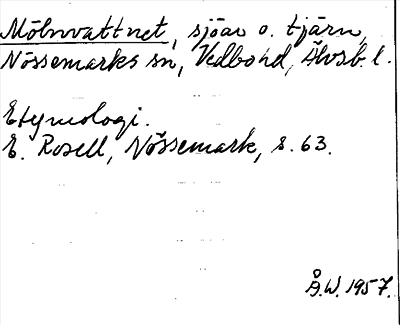 Mölnvattnet, sjöar o. tjärn,
Nössemarks sn, Vedbo hd, Älvsb. l.
Etymologi.
E. Rosell, Nössemark, s. 63.
Å.W. 1957.